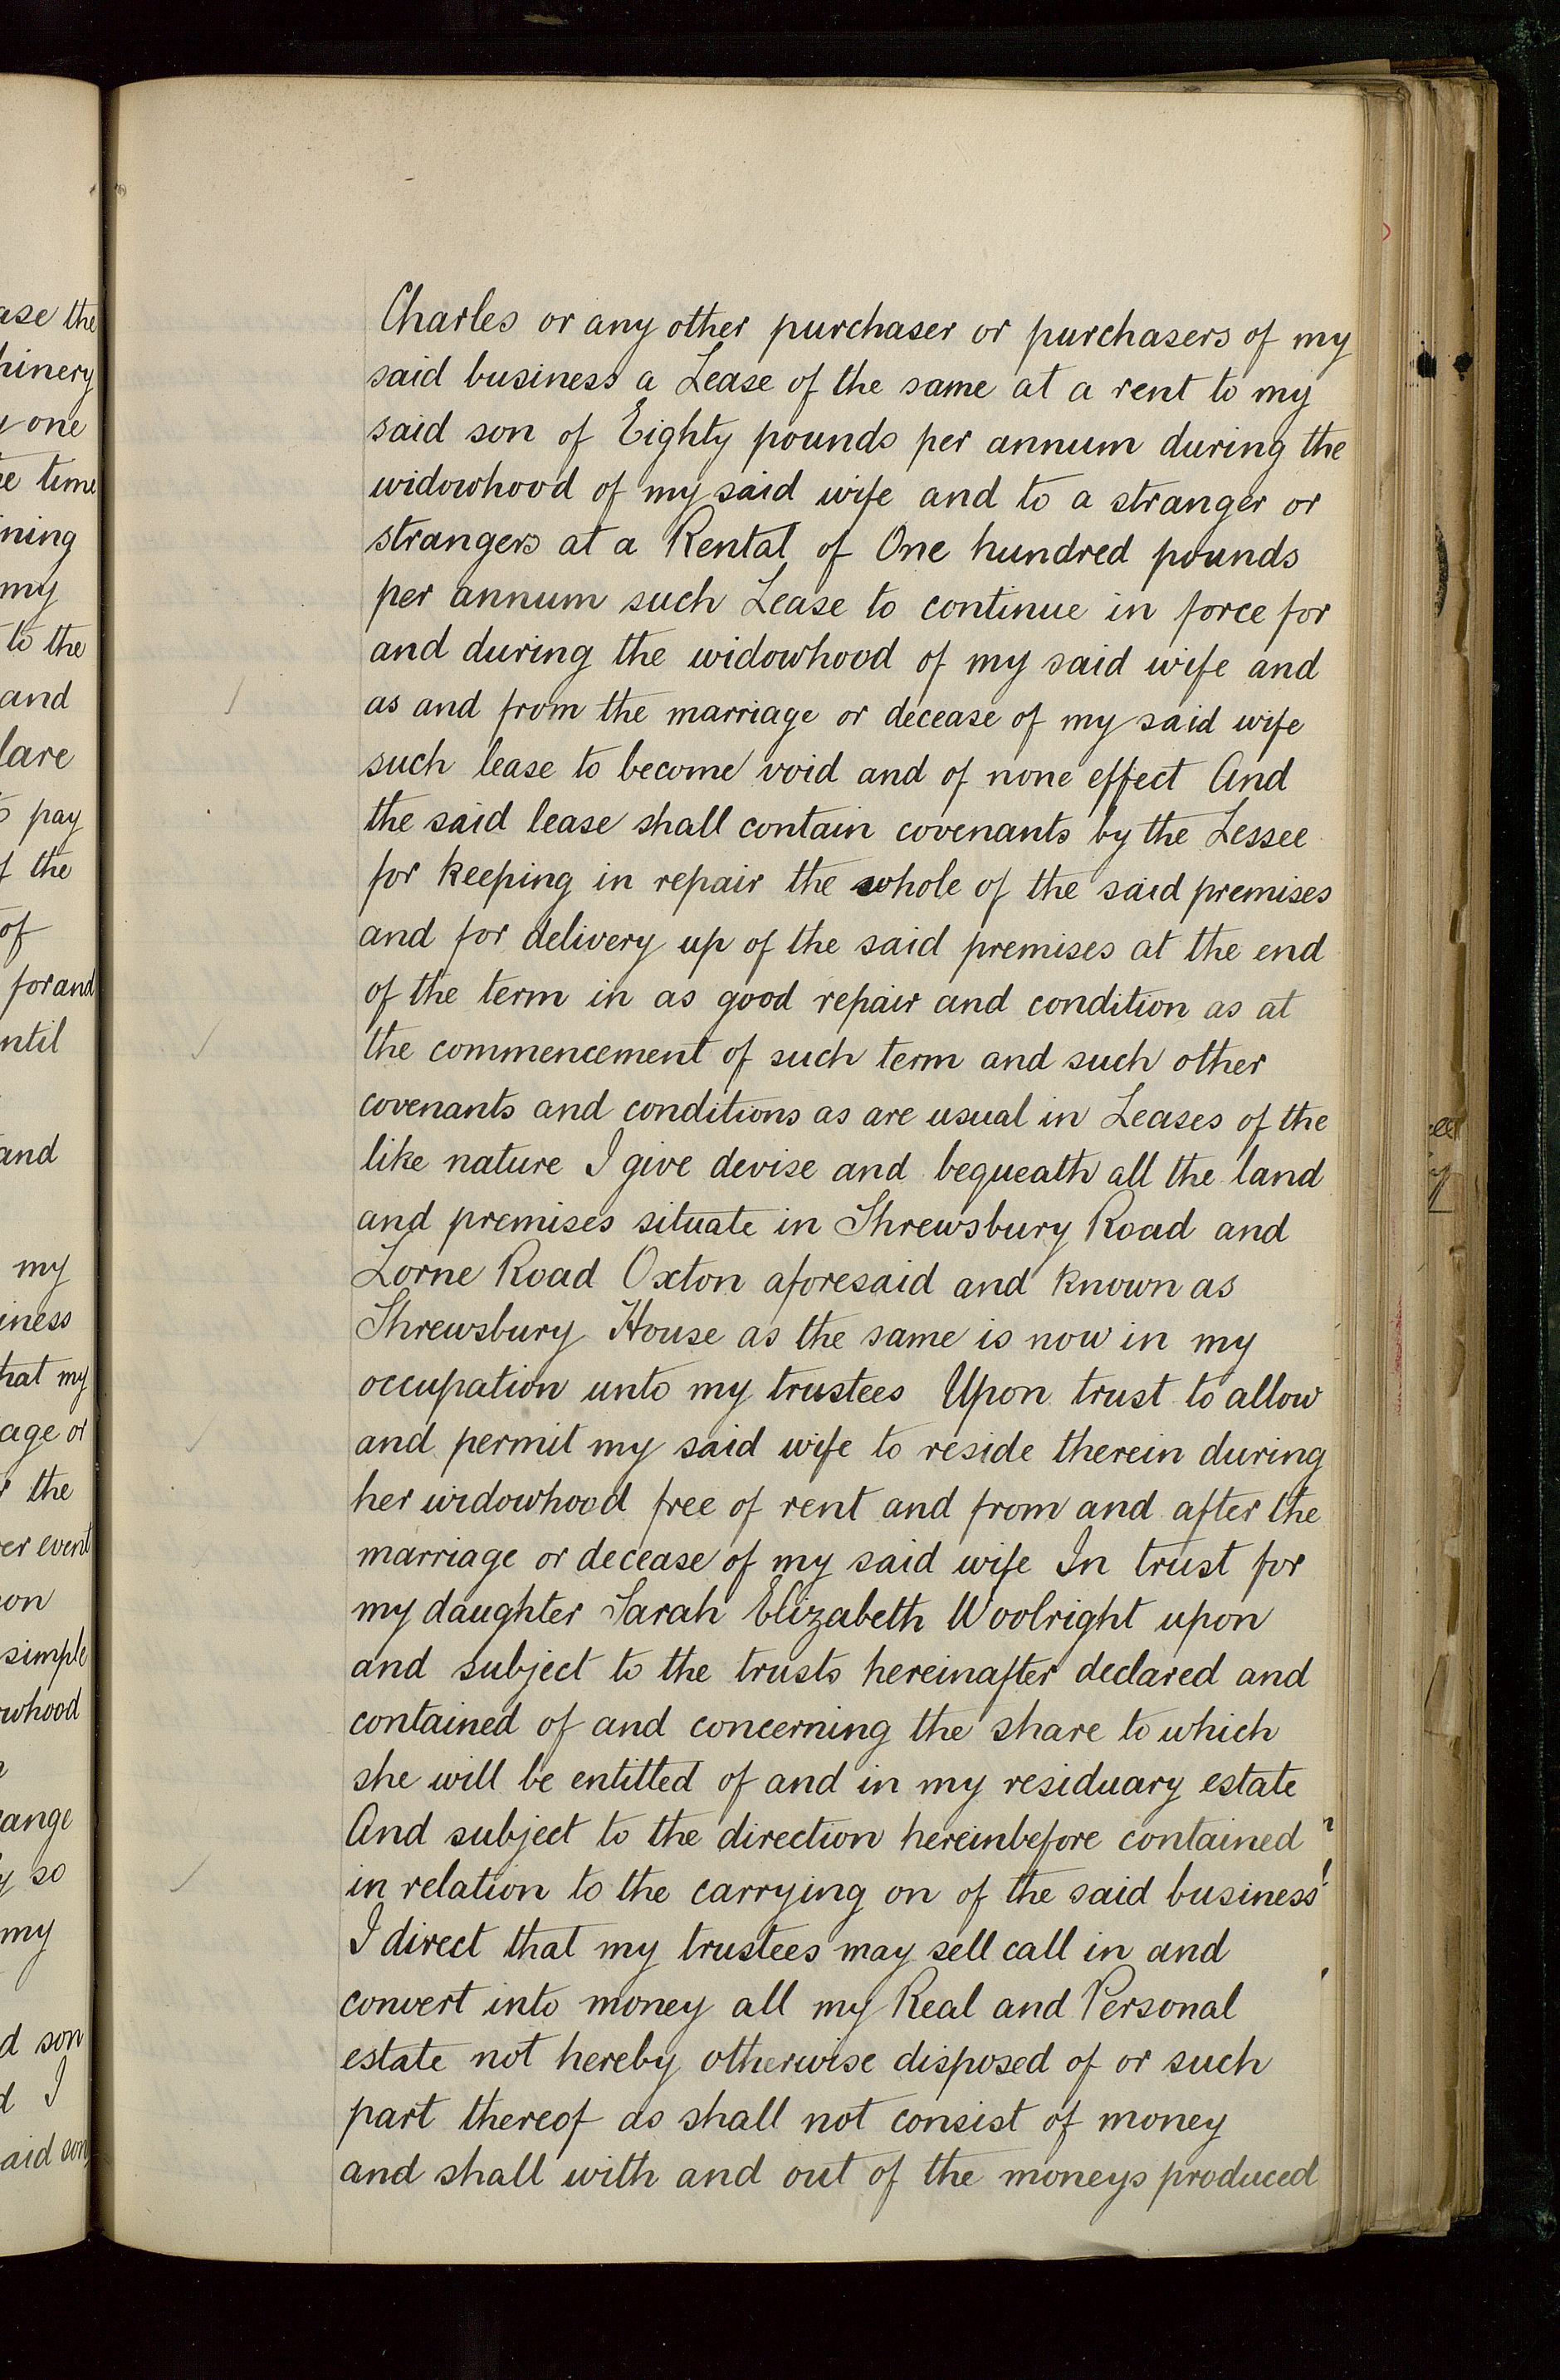 ase the
hinery
one
e time
ning
my
to the
and
lare
pay
f the
of
for and
ntil
and
my
iness
hat my
age or
the
er event
on
simple
whood
ange
so
my
d son
d I
aid son
Charles or any other purchaser or purchasers of my
said business a Lease of the same at a rent to my
said son of Eighty pounds per annum during the
widowhood of my said wife and to a stranger or
strangers at a Rental of One hundred pounds
per annum such Lease to continue in force for
and during the widowhood of my said wife and
as and from the marriage or decease of my said wife
such lease to become void and of none effect And
the said lease shall contain covenants by the Lessee
for keeping in repair the whole of the said premises
and for delivery up of the said premises at the end
of the term in as good repair and condition as at
the commencement of such term and such other
covenants and conditions as are usual in Leases of the
like nature I give devise and bequeath all the land
and premises situate in Shrewsbury Road and
Lorne Road Oxton aforesaid and known as
Shrewsbury House as the same is now in my
occupation unto my trustees Upon trust to allow
and permit my said wife to reside therein during
her widowhood free of rent and from and after the
marriage or decease of my said wife In trust for
my daughter Sarah Elizabeth Woolright upon
and subject to the trusts hereinafter declared and
contained of and concerning the share to which
she will be entitled of and in my residuary estate
And subject to the direction hereinbefore contained
in relation to the carrying on of the said business
I direct that my trustees may sell call in and
convert into money all my Real and Personal
estate not hereby otherwise disposed of or such
part thereof as shall not consist of money
and shall with and out of the moneys produced